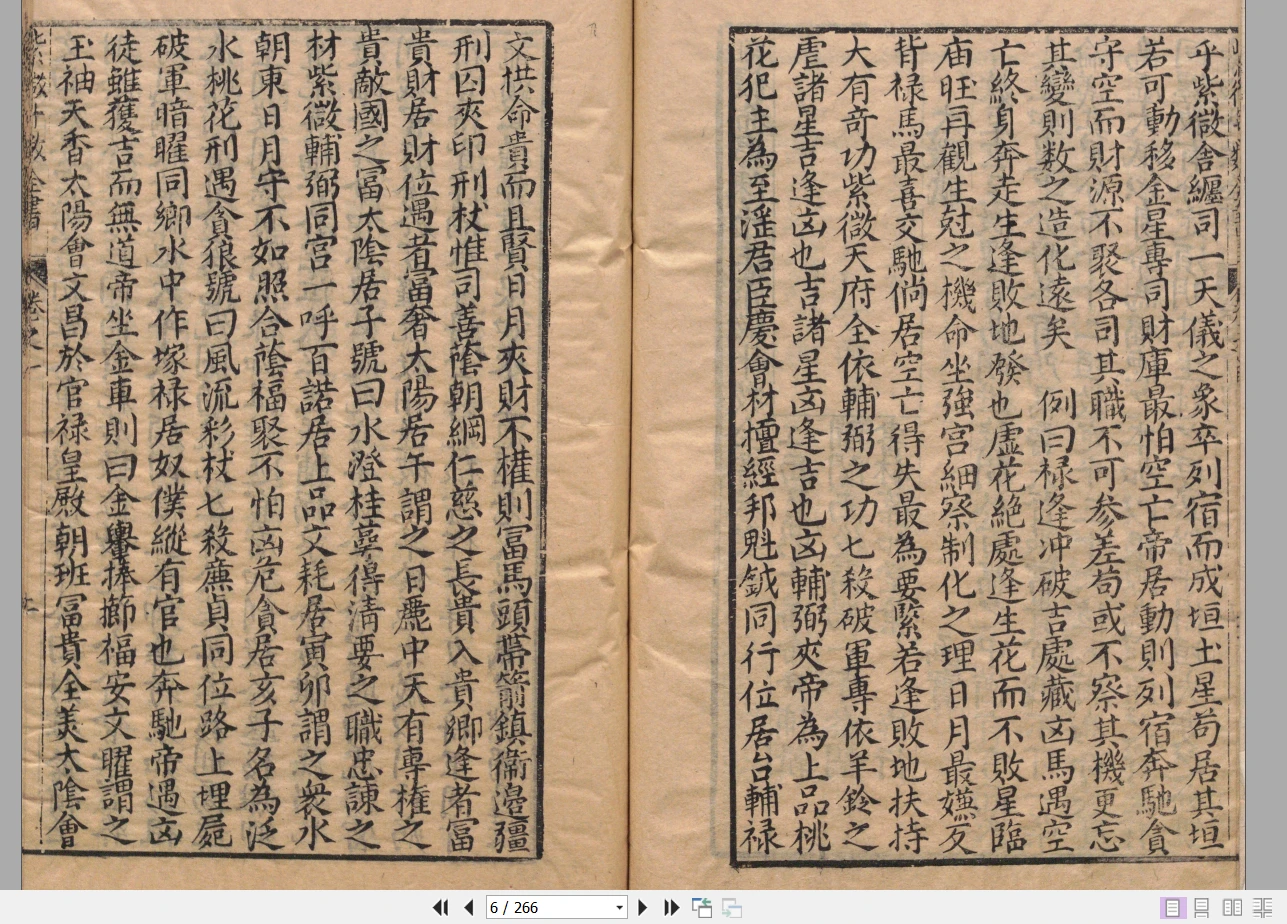 乎紫微舍纏司一天儀之象卒列宿而成垣土星苟居其垣
若可動移金星專司財庫最怕空亡帝居動則列宿奔馳貪
守空而財源不聚各司其職不可参差苟或不察其機更忘
其變則数之造化遠矣 例曰禄逢冲破吉處藏凶馬遇空
亡終身奔走生逢敗地發也虛花絕處逢生花而不敗星臨
庙旺再觀生尅之機命坐強宫細察制化之理日月最嫌反
背禄馬最喜交馳倘居空亡得失最為要緊若逢敗地扶持
大有竒功紫微天府全依輔弼之功七殺破軍專依羊鈴之
虐諸星吉逢凶也吉諸星凶逢吉也凶輔弼夾帝為上品桃
花犯主為至滛君臣慶會材擅經邦魁鉞同行位居台輔禄
文拱命貴而且賢日月夾財不權則冨馬頭帶箭鎮衞邊疆
刑囚夾印刑杖惟司善蔭朝綱仁慈之長貴入貴鄉逢者冨
貴財居財位遇者富奢太陽居午謂之日麗中天有專權之
貴敵國之冨太陰居子號曰水澄桂萼得清要之職忠諫之
材紫微輔弼同宫一呼百諾居上品文耗居寅卯謂之衆水
朝東日月守不如照合蔭福聚不怕凶危貪居亥子名為泛
水桃花刑遇貪狼號曰風流彩杖七殺廉貞同位路上埋屍
破軍暗曜同鄉水中作塚禄居奴僕縱有官也奔馳帝遇凶
徒雖獲吉而無道帝坐金車則曰金轝捧櫛福安文曜謂之
玉袖天香太陽會文昌於官禄皇殿朝班冨貴全美太陰會
6 / 266